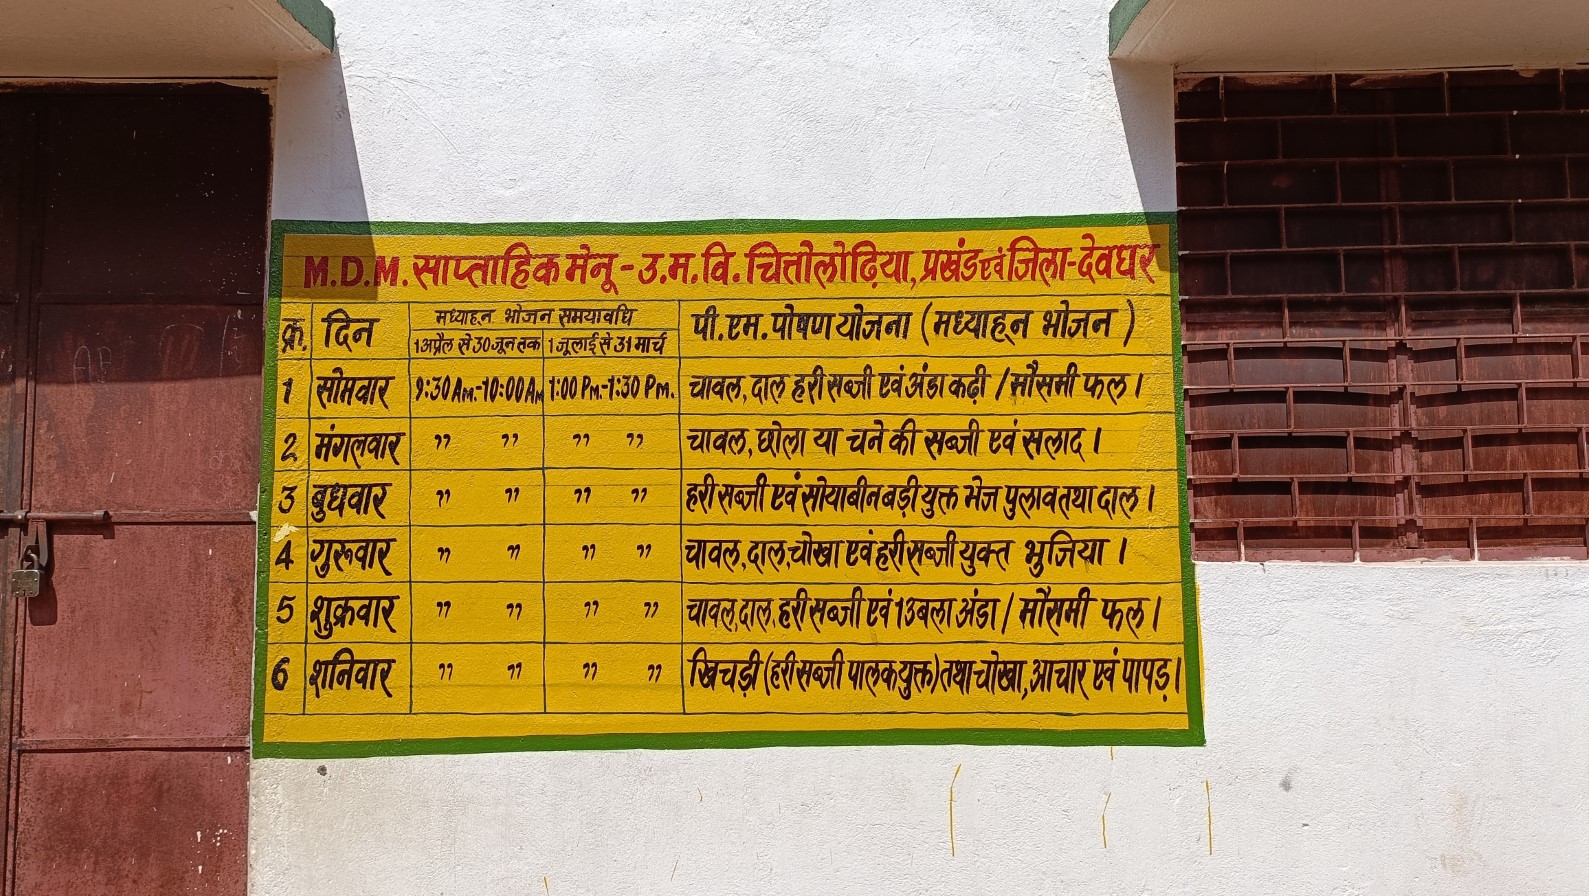 M.D.M. साप्ताहिक मेनू - उ.म.वि. चित्तोलोढ़िया, प्रखंड एवं जिला-देवघर
क्र. दिन मध्याहन भोजन समयावधि पी.एम.पोषण योजना (मध्याहन भोजन)
1 अप्रैल से 30 जून तक 1 जूलाई से 31 मार्च
1 सोमवार 9:30 Am.-10:00 Am 1:00 Pm.-1:30 Pm. चावल, दाल हरी सब्जी एवं अंडा कढ़ी / मौसमी फल।
2 मंगलवार " " " " चावल, छोला या चने की सब्जी एवं सलाद।
3 बुधवार " " " " हरी सब्जी एवं सोयाबीन बड़ी युक्त भेज पुलाव तथा दाल।
4 गुरूवार " " " " चावल, दाल, चोखा एवं हरी सब्जी युक्त भुजिया।
5 शुक्रवार " " " " चावल, दाल, हरी सब्जी एवं 1 उबला अंडा / मौसमी फल।
6 शनिवार " " " " खिचड़ी (हरी सब्जी पालक युक्त) तथा चोखा, आचार एवं पापड़।